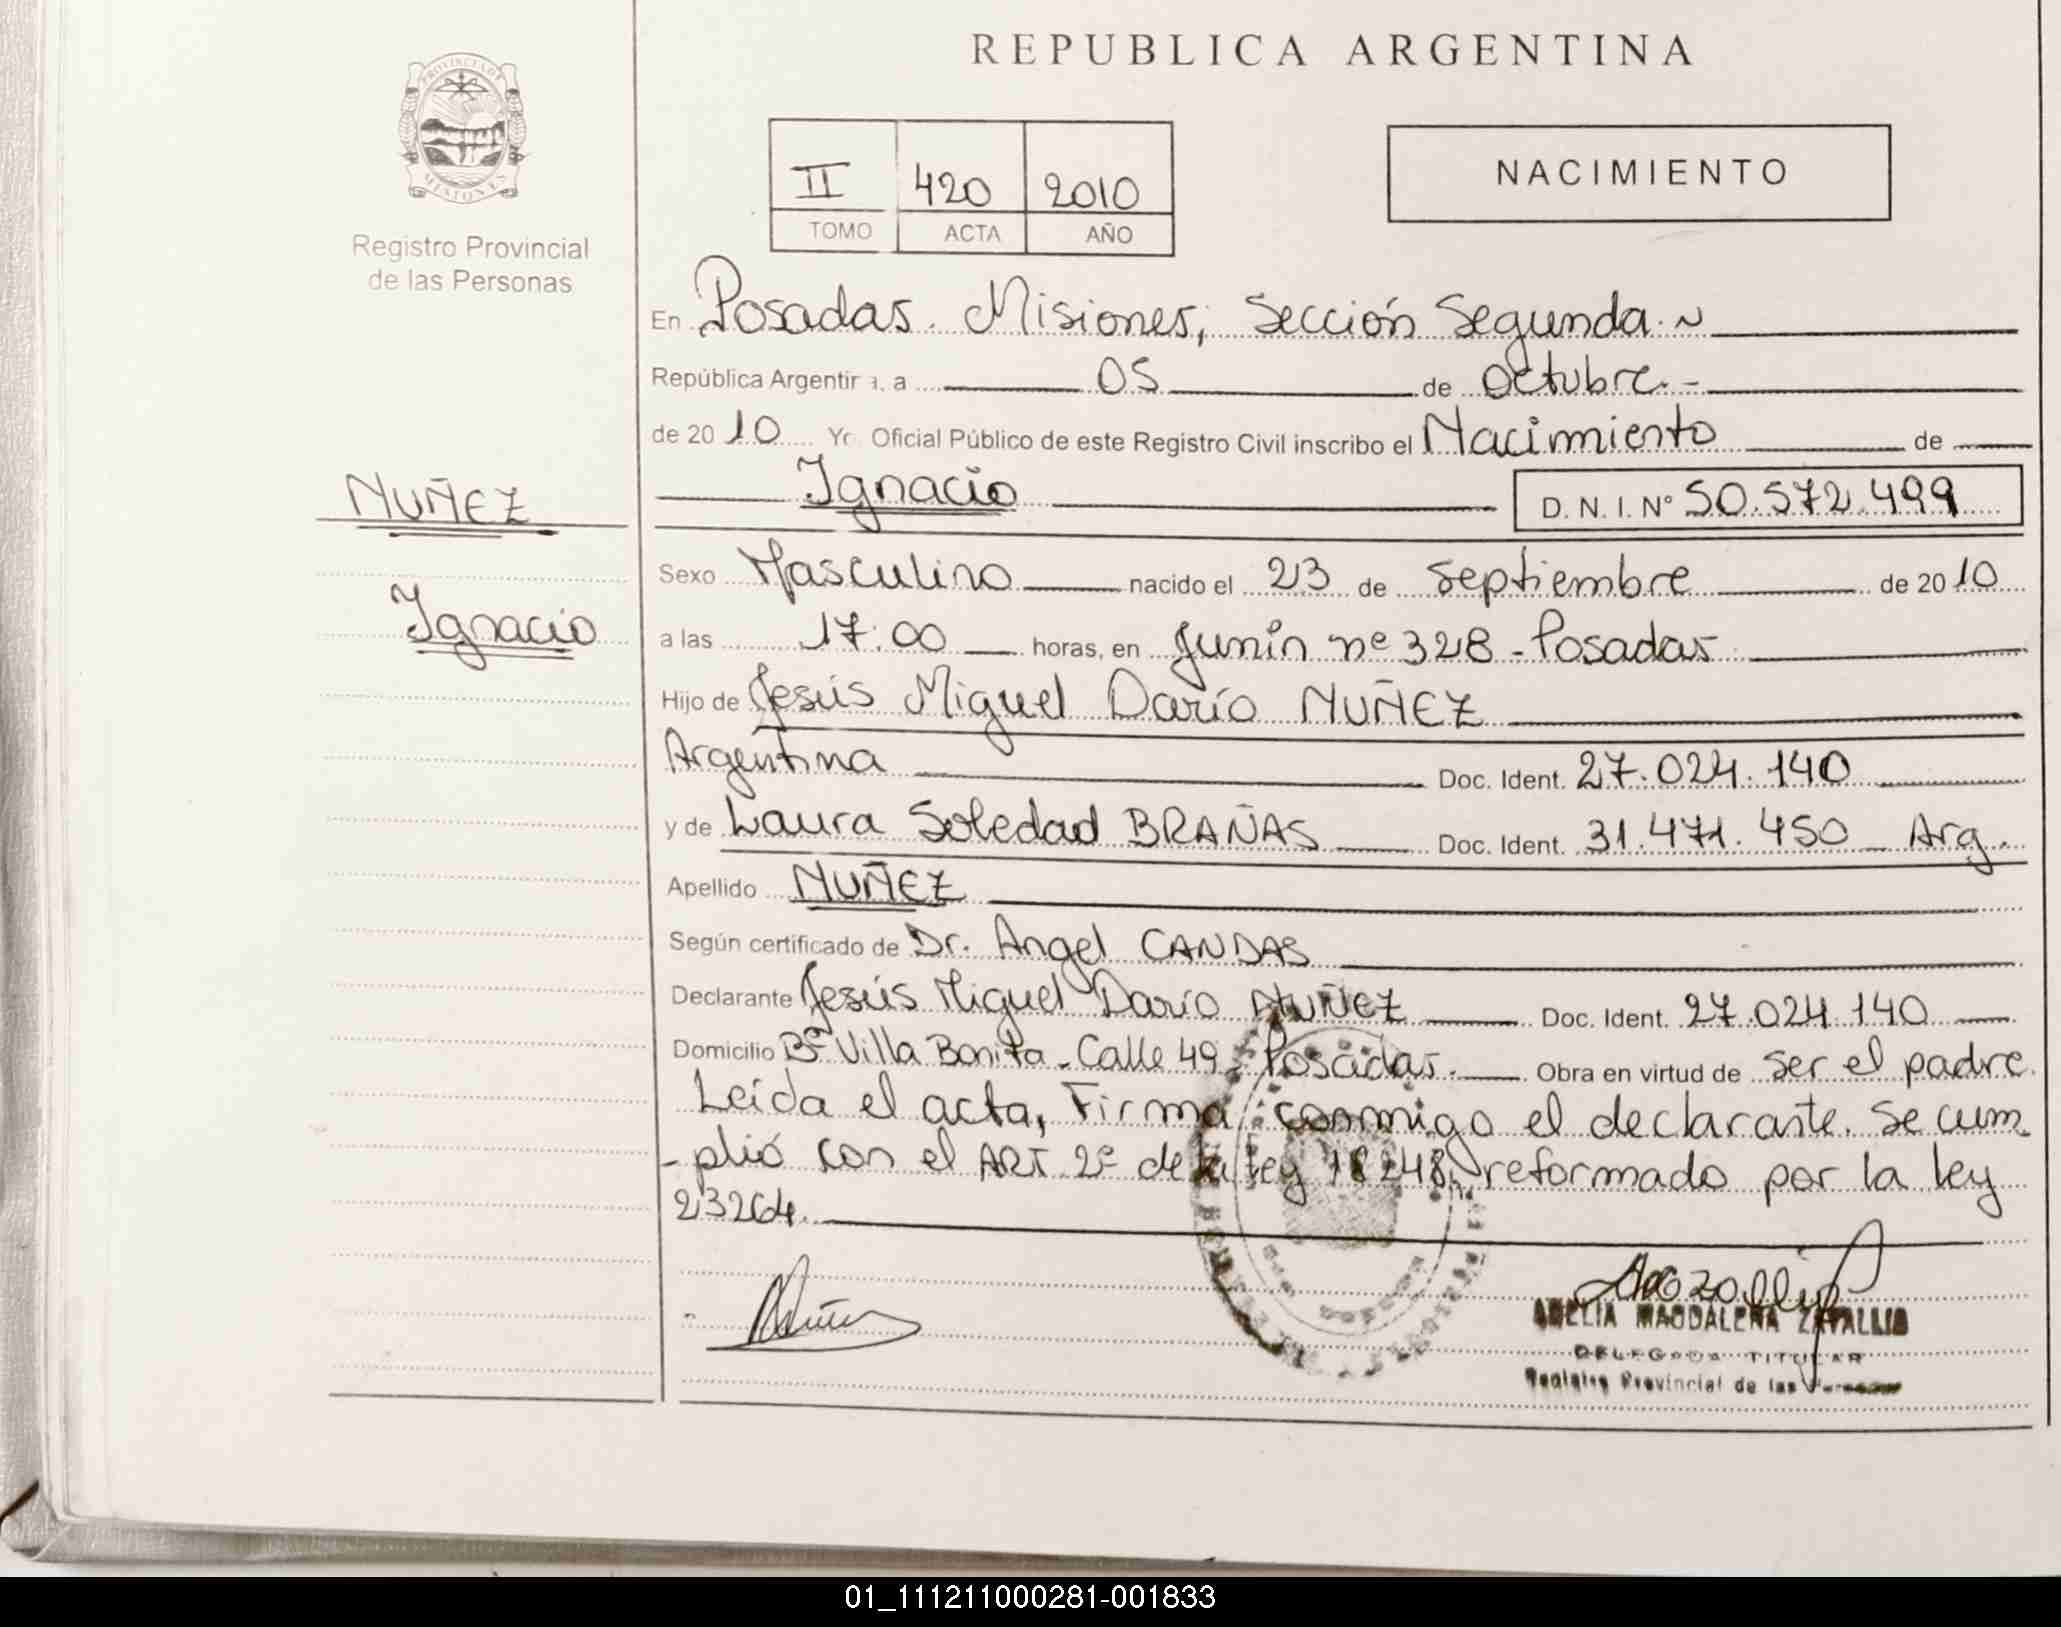 REPUBLICA ARGENTINA
PROVINCIA DE
MISIONES
Registro Provincial
de las Personas
II 420 2010
TOMO ACTA AÑO
NACIMIENTO
En Posadas. Misiones, Sección Segunda. ~
República Argentina, a 05 de Octubre.-
de 2010 Yo Oficial Público de este Registro Civil inscribo el Nacimiento de
NUÑEZ
Ignacio
D. N. I. Nº 50.572.499
Sexo Masculino nacido el 23 de Septiembre de 2010
Ignacio
a las 17:00 horas, en Junín nº 328 - Posadas.
Hijo de Jesús Miguel Darío NUÑEZ
Argentina Doc. Ident. 27.024.140
y de Laura Soledad BRAÑAS Doc. Ident. 31.471.450 Arg.
Apellido NUÑEZ
Según certificado de Dr. Angel CANDAS
Declarante Jesús Miguel Darío NUÑEZ Doc. Ident. 27.024.140
Domicilio Bº Villa Bonita - Calle 49 - Posadas. Obra en virtud de ser el padre.
Leída el acta, Firma conmigo el declarante. Se cum
-plió con el ART 2º de la ley 18248, reformado por la ley
23264.
ADELIA MAGDALENA ZAPALLIO
DELEGADA TITULAR
Registro Provincial de las Personas
01_111211000281-001833